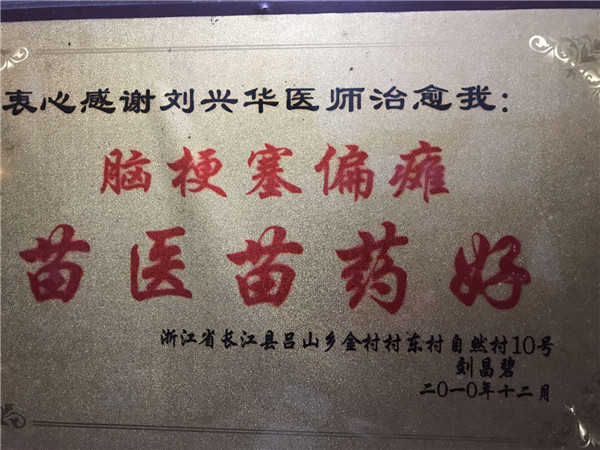 衷心感谢刘兴华医师治愈我：
脑梗塞偏瘫
苗医苗药好
浙江省长江县吕山乡金村村东村自然村10号
刘昌碧
二0一0年十二月